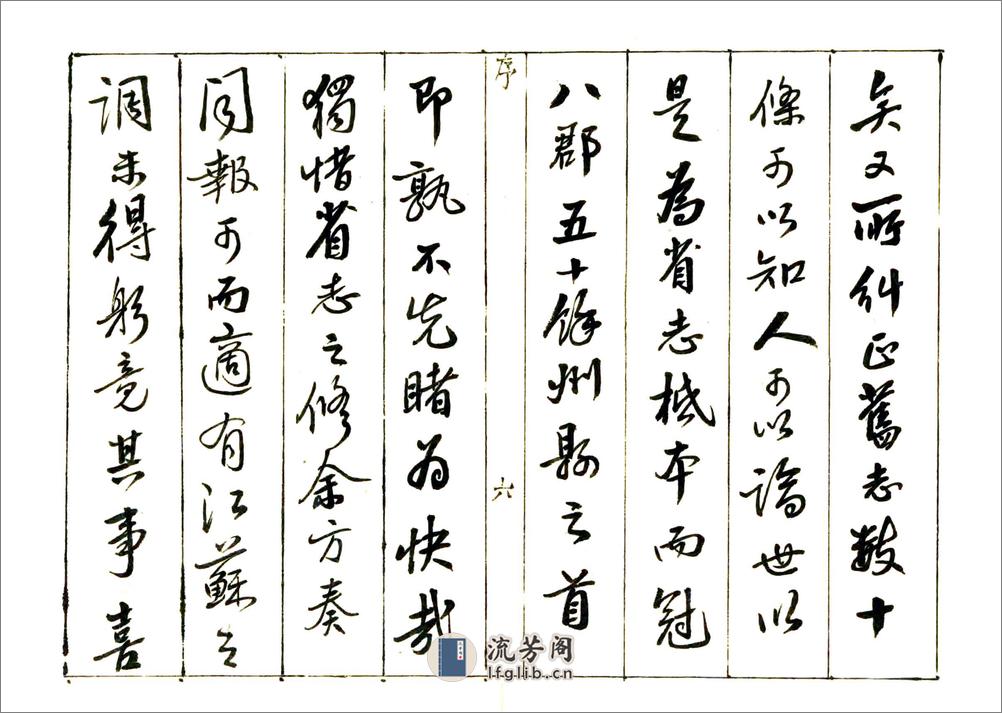 矣又所糾正舊志數十
條可以知人可以論世以
是為省志柢本而冠
八郡五十餘州縣之首
序
六
即孰不先睹為快哉
獨惜省志之修余方奏
聞報可而適有江蘇之
調未得躬竟其事喜
流芳阁
lfglib.cn